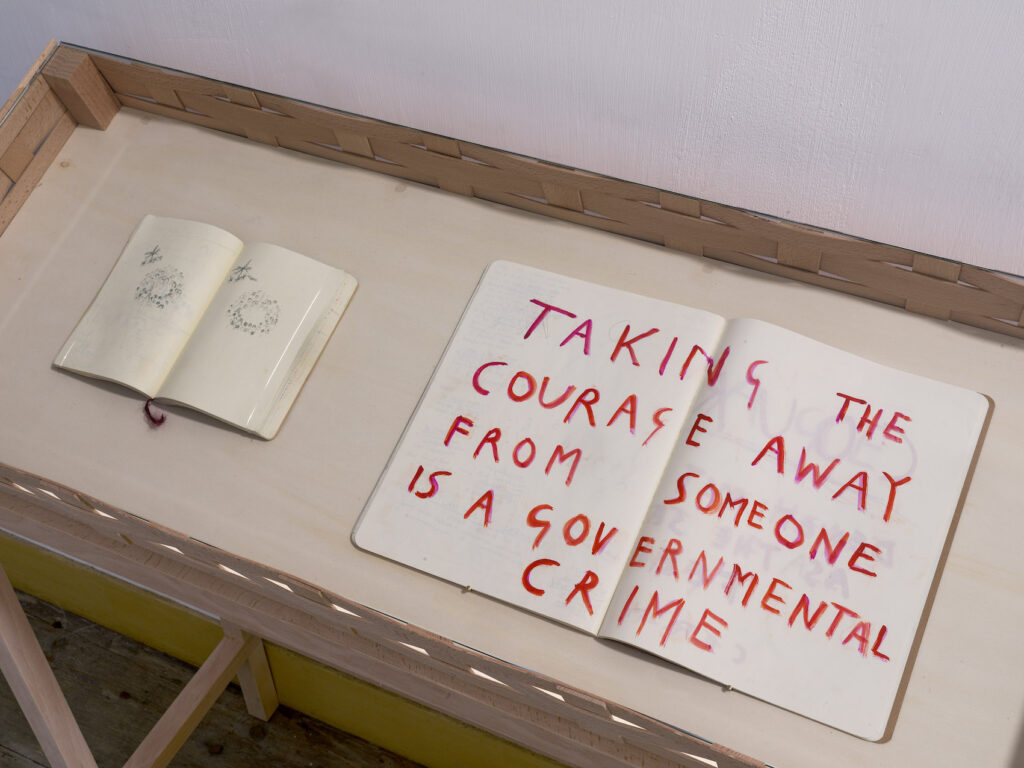 TAKING THE
COURAGE AWAY
FROM SOMEONE
IS A GOVERNMENTAL
CRIME